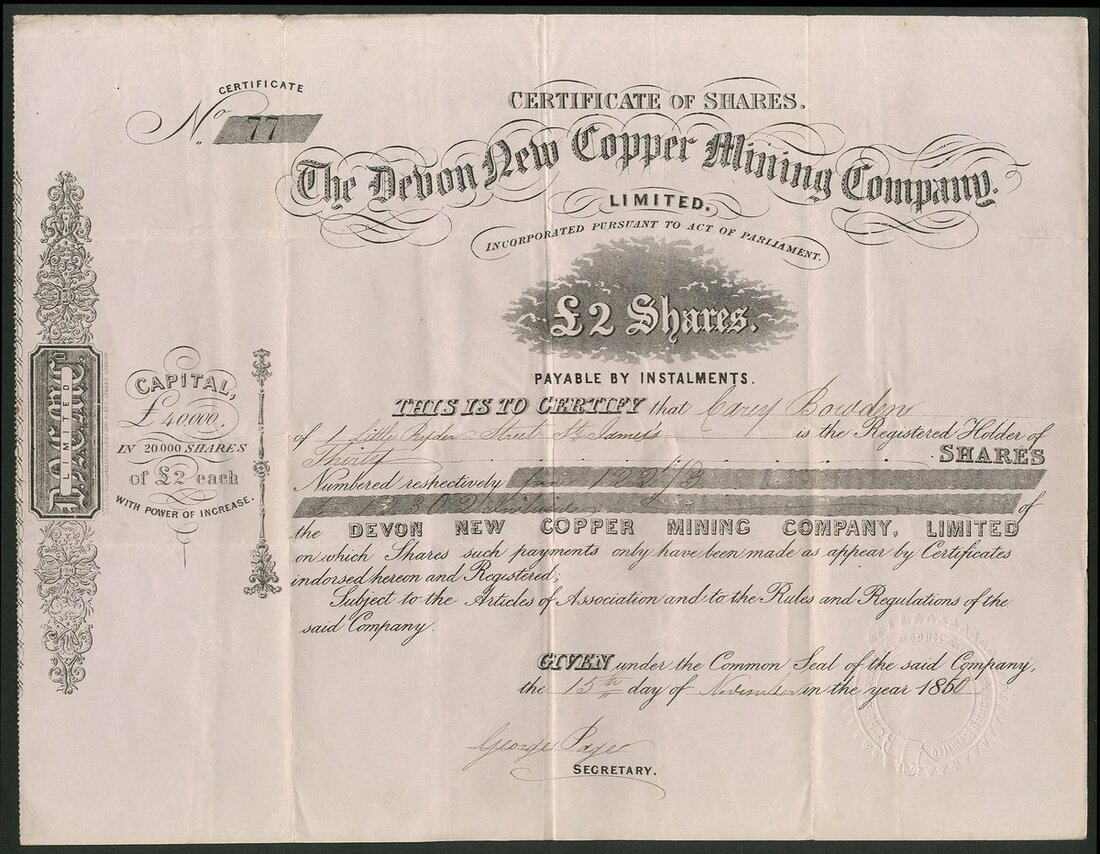 CERTIFICATE
No 77
CERTIFICATE OF SHARES.
The Devon New Copper Mining Company.
LIMITED.
INCORPORATED PURSUANT TO ACT OF PARLIAMENT.
£2 Shares.
PAYABLE BY INSTALMENTS.
CAPITAL,
£40000.
IN 20000 SHARES
of £2 each
WITH POWER OF INCREASE.
LIMITED
THIS IS TO CERTIFY that Carey Bowden
of 1 Little Ryder Street St James's is the Registered Holder of
Thirty SHARES
Numbered respectively from 12273
to 12302 inclusive of
the DEVON NEW COPPER MINING COMPANY, LIMITED
on which Shares such payments only have been made as appear by Certificates
indorsed hereon and Registered,
Subject to the Articles of Association and to the Rules and Regulations of the
said Company.
GIVEN under the Common Seal of the said Company,
the 15th day of November in the year 1860
George Page
SECRETARY.